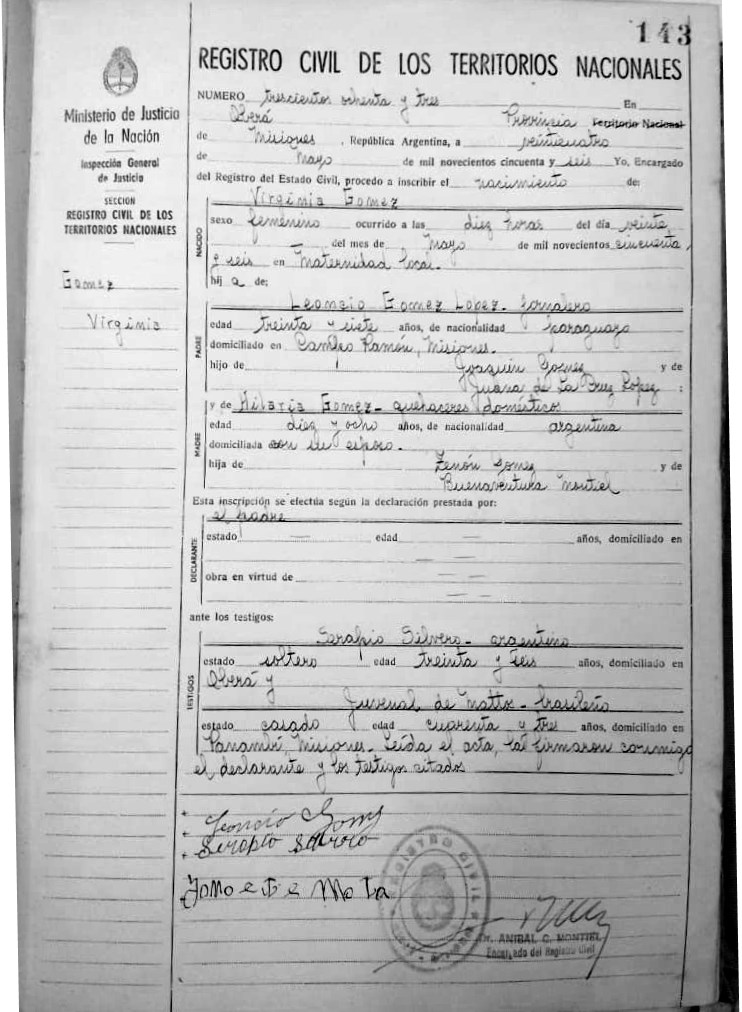 143
REGISTRO CIVIL DE LOS TERRITORIOS NACIONALES
Ministerio de Justicia
de la Nación
Inspección General
de Justicia
SECCION
REGISTRO CIVIL DE LOS
TERRITORIOS NACIONALES
Gomez
Virginia
NUMERO trescientos ochenta y tres En
Oberá Provincia Territorio Nacional
de Misiones, República Argentina, a veinticuatro
de Mayo de mil novecientos cincuenta y seis Yo, Encargado
del Registro del Estado Civil, procedo a inscribir el nacimiento de:
NACIDO
Virginia Gomez
sexo femenino ocurrido a las diez horas del día veinte
del mes de Mayo de mil novecientos cincuenta
y seis en Maternidad local.
hij a de:
PADRE
Leoncio Gomez Lopez - jornalero
edad treinta y siete años, de nacionalidad paraguayo
domiciliado en Campo Ramón, Misiones.
hijo de Joaquín Gomez y de
Juana de La Cruz Lopez :
MADRE
y de Hilaria Gomez - quehaceres domésticos
edad diez y ocho años, de nacionalidad argentina
domiciliada con su esposo.
hija de Zenón Gomez y de
Buenaventura Montiel
Esta inscripción se efectúa según la declaración prestada por:
DECLARANTE
el padre
estado — edad — años, domiciliado en
— —
obra en virtud de — —
— —
ante los testigos:
TESTIGOS
Serapio Silvero - argentino
estado soltero edad treinta y seis años, domiciliado en
Oberá y
Juvenal de Mattos - brasileño
estado casado edad cuarenta y tres años, domiciliado en
Panambí, Misiones - Leída el acta, la firmaron conmigo
el declarante y los testigos citados
Leoncio Gomez
Serapio Silvero
Mota
REGISTRO CIVIL
Dr. ANIBAL C. MONTIEL
Encargado del Registro Civil